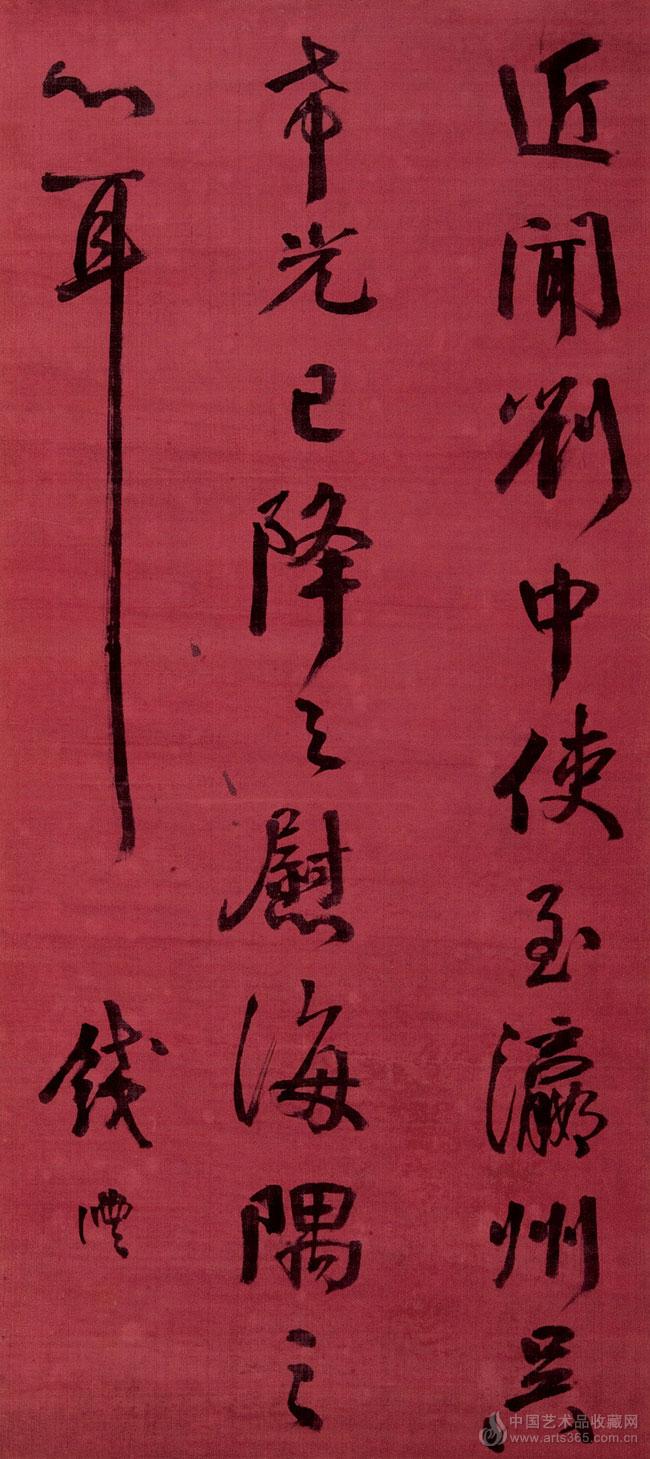 近聞劉中使至瀛州吳
希光已降足慰海隅之
心耳
錢灃
中国艺术品收藏网
www.arts365.com.cn